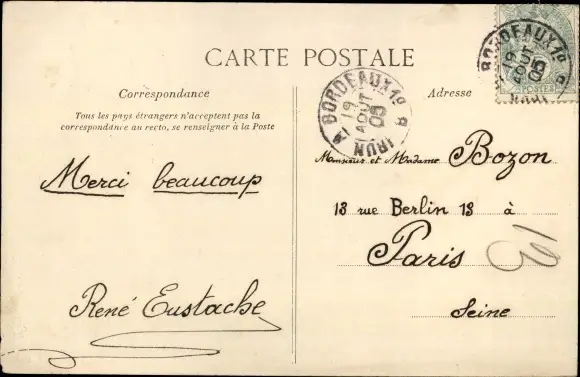 CARTE POSTALE
Correspondance
Tous les pays étrangers n'acceptent pas la
correspondance au recto, se renseigner à la Poste
Merci beaucoup
René Eustache
Adresse
Monsieur et Madame Bozon
13 rue Berlin 13 à
Paris
Seine
BORDEAUX
19
AOUT
05
IRUN
BORDEAUX
19
AOUT
05
POSTES